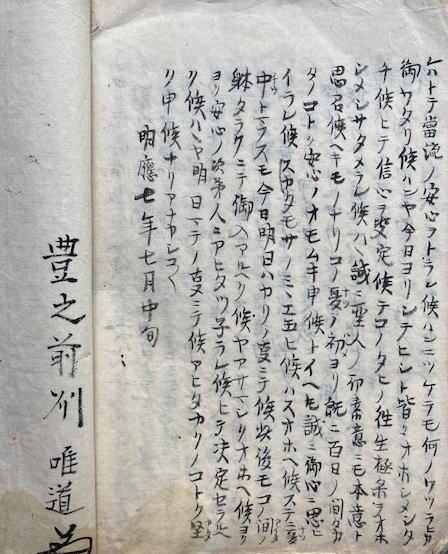 ヘトテ當流ノ安心ヲトラレ候ハンニツケテモ何ノワツラヒカ
御ワタリ候ハンヤ今日ヨリシテヒシト皆々オホシメシタ
チ候ヒテ信心ヲ決定候テコノタヒノ往生極楽ヲオホ
シメシサタメラレ候ハヽ誠ニ聖人ノ初素意ニモ本意ト
思召候ヘキモノナリコノ夏ノ初ヨリ既ニ百日ノ間カタ
タノコトク安心ノオモムキ申候トイヘ𪜈誠ニ御心ニ思ヒ
イラレ候スカタモサノミミエ玉ヒ候ハスオホヘ候ステニ夏
中トマフスモ今日明日ハカリノ夏ニテ候後モコノ間ノ
躰タラクニテ御入アルヘク候ヤアサマシクオホヘ候ヨク
ヨク安心ノ次第人ニアヒタツ子ラレ候ヒテ決定セラルヘ
ク候ハンヤ明日マテノ夏ニテ候アヒタカクノコトク堅
ク申候ナリアナカシコ〱
明應七年七月中旬
豊之前州 唯道